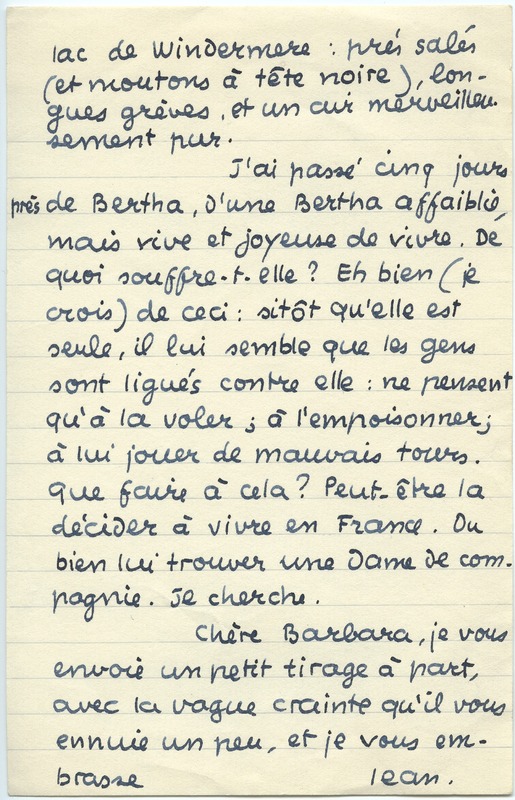 lac de Windermere : prés salés
(et moutons à tête noire), lon-
gues grèves, et un air merveilleu-
sement pur.
J'ai passé cinq jours
près de Bertha, d'une Bertha affaiblie,
mais vive et joyeuse de vivre. De
quoi souffre-t-elle ? Eh bien (je
crois) de ceci : sitôt qu'elle est
seule, il lui semble que les gens
sont ligués contre elle : ne pensent
qu'à la voler ; à l'empoisonner ;
à lui jouer de mauvais tours.
Que faire à cela ? Peut-être la
décider à vivre en France. Ou
bien lui trouver une Dame de com-
pagnie. Je cherche.
Chère Barbara, je vous
envoie un petit tirage à part,
avec la vague crainte qu'il vous
ennuie un peu, et je vous em-
brasse Jean.